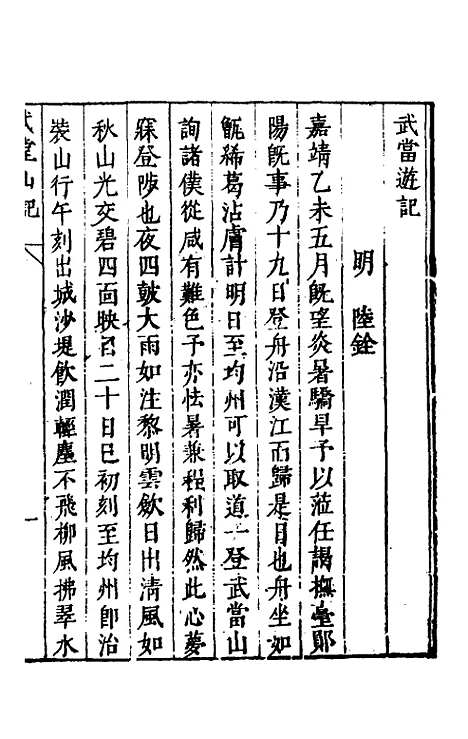 武當遊記
明 陸銓
嘉靖乙未五月旣望炎暑驕旱予以蒞任謁撫臺鄖
陽旣事乃十九日登舟沿漢江而歸是日也舟坐如
甑絺葛沾膚計明日至均州可以取道一登武當山
詢諸僕從咸有難色予亦怯暑兼程利歸然此心夢
寐登陟也夜四鼓大雨如注黎明雲歛日出清風如
秋山光交碧四面映
二十日巳初刻至均州卽治
裝山行午刻出城沙堤飲潤輕塵不飛柳風拂翠水
武當山記
一